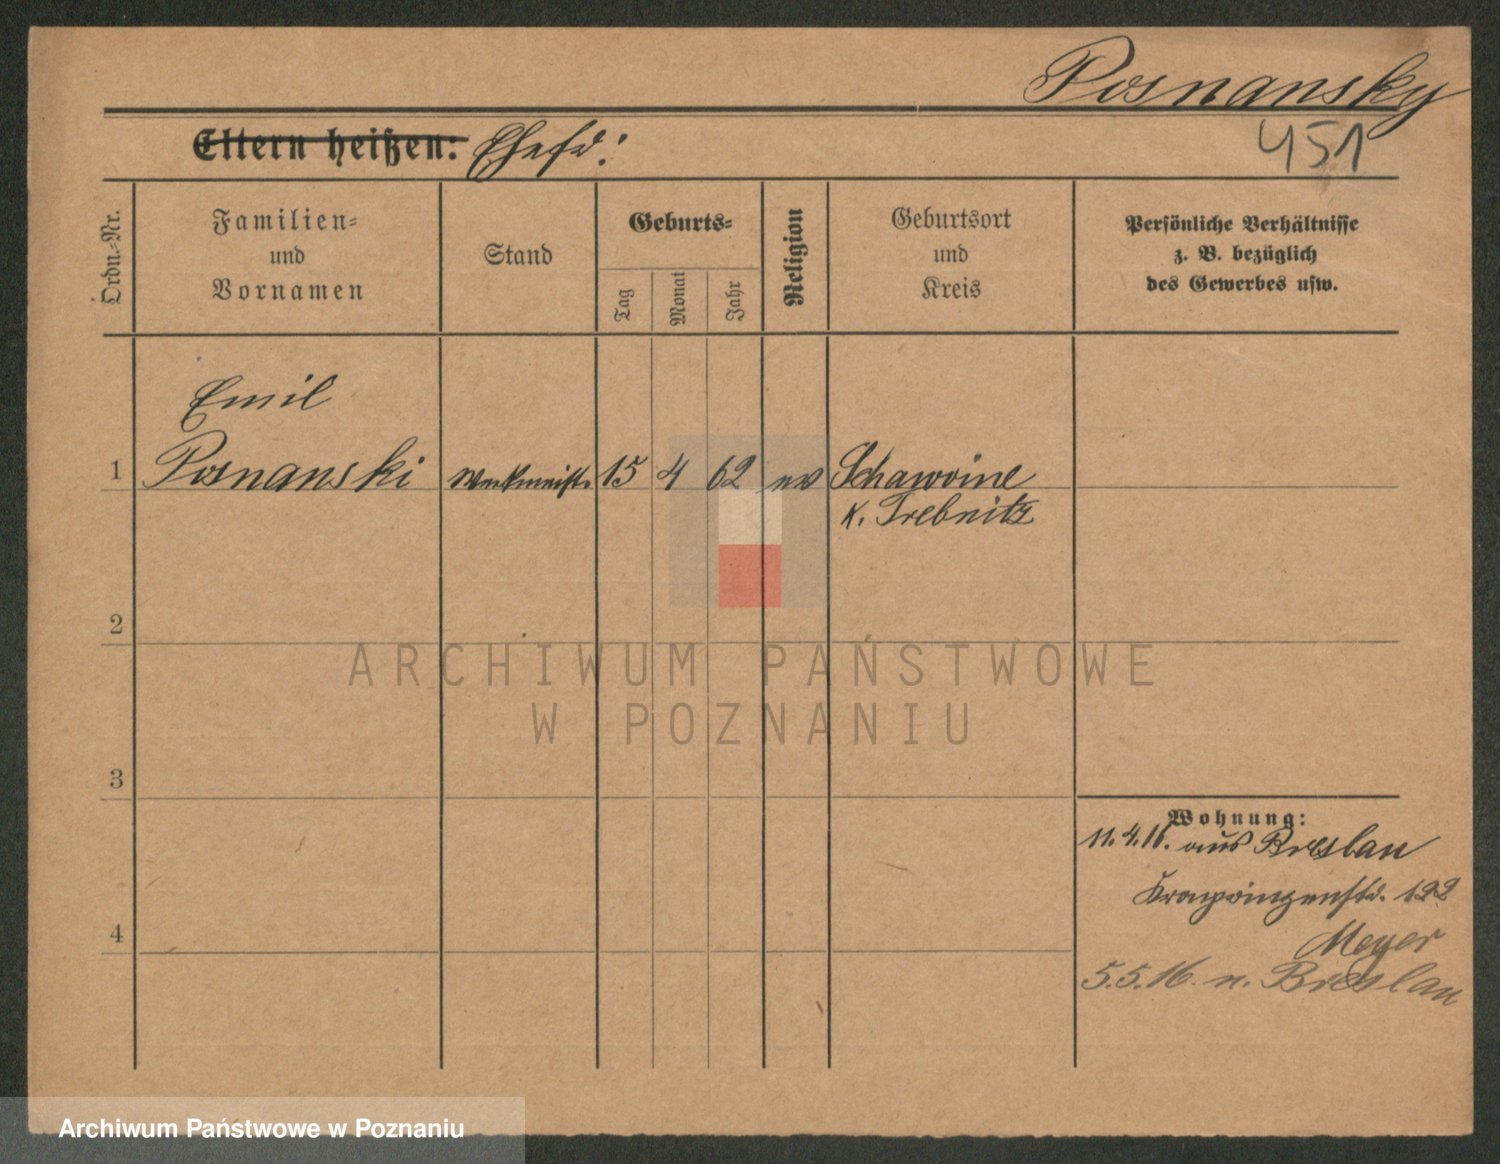 Posnansky
451
Eltern heißen: Ehefr:
Ordn.=Nr.
Familien=
und
Vornamen
Stand
Geburts=
Tag
Monat
Jahr
Religion
Geburtsort
und
Kreis
Persönliche Verhältnisse
z. B. bezüglich
des Gewerbes usw.
Emil
1 Posnanski Werkmeist. 15 4 62 ev Schawoine
K. Trebnitz
2
ARCHIWUM PAŃSTWOWE
W POZNANIU
3
Wohnung:
11.4.16. aus Breslau
Kronprinzenstr. 122
4
Meyer
5.5.16. n. Breslau
Archiwum Państwowe w Poznaniu